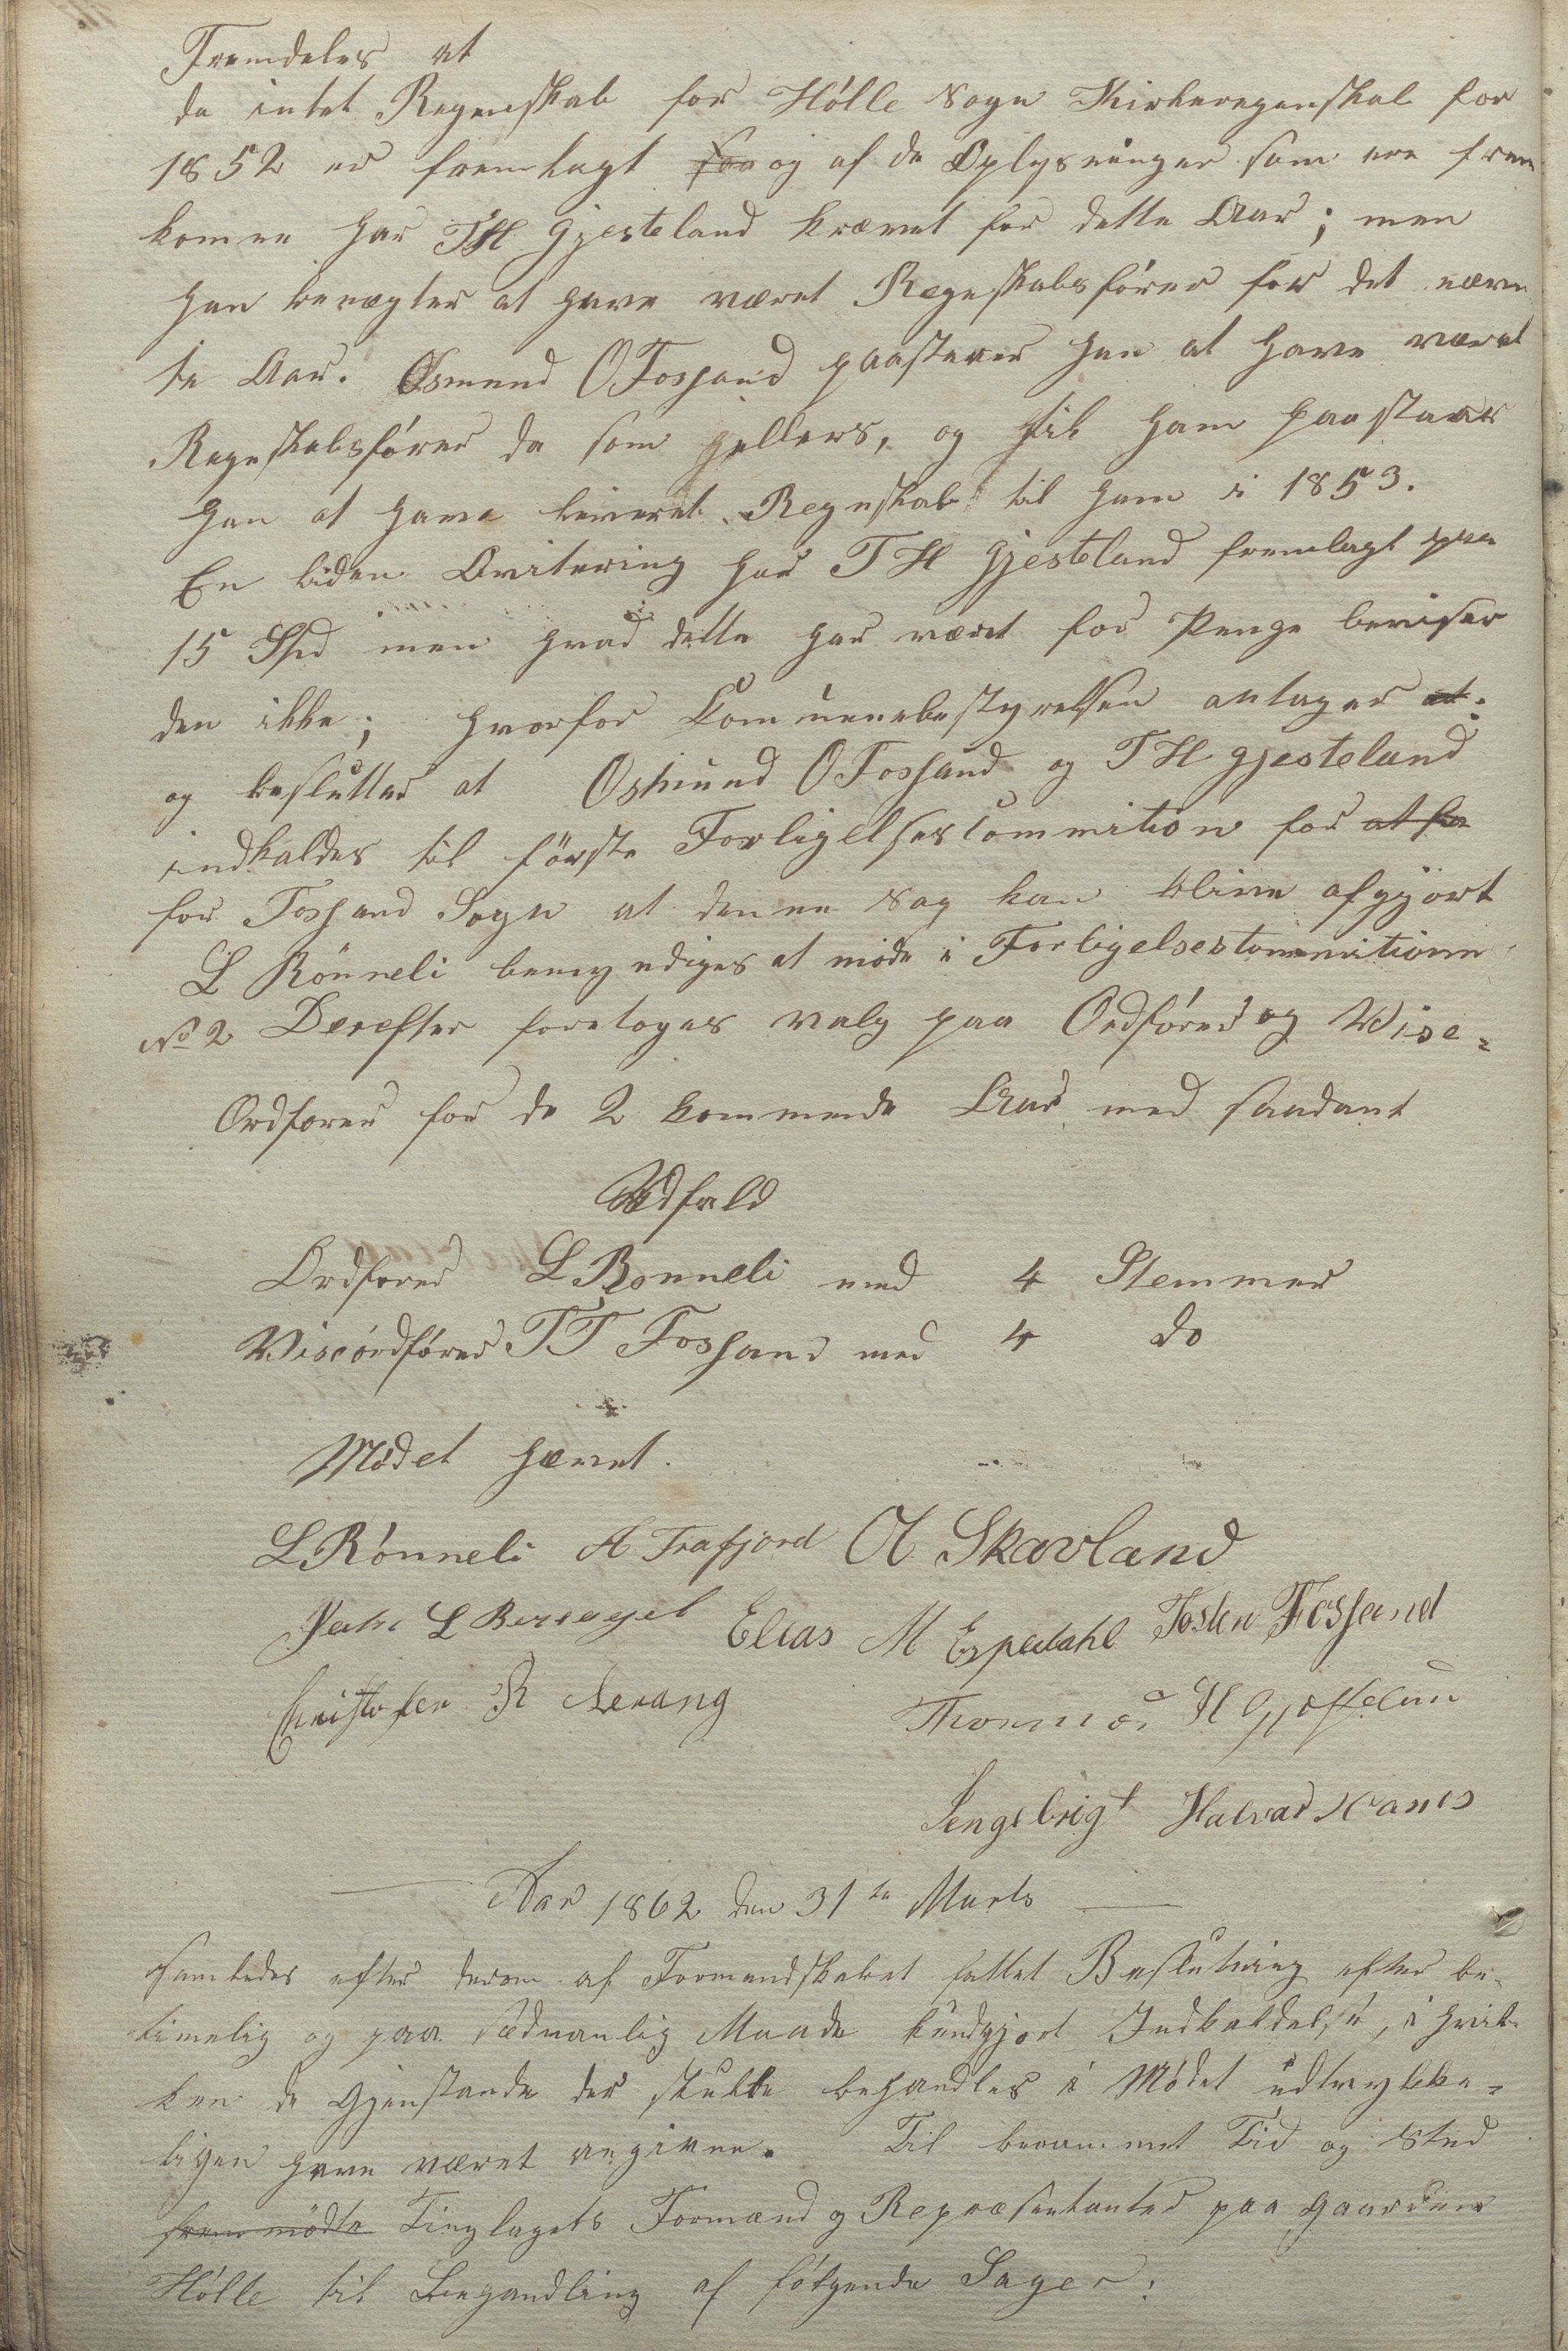 Fremdeles at
da intet Regnskab for Hölle Sogn Kirkeregenskab for
1852 er fremlagt for og af de Oplysninger som ere frem
komne har TH Gjesteland krævet for dette Aar; men
han benægter at have været Regeskabsfører for det nævn
te Aar. Osmund O Fossand paastaaer han at have været
Regeskabsfører da som Hellers, og til ham paastaar
han at have leveret Regnskab til ham i 1853.
En liden Qvitering har T H Gjesteland fremlagt paa
15 Spd men hvad dette har været for Penge beviser
den ikke; hvorfor Communebestyrelsen antager at
og beslutter at Osmund O Fossand og T H Gjesteland
indkaldes til første Forligelsescommition for at fa
for Fossand Sogn at denne Sag kan blive afgjort
L Rönneli bemyndiges at møde i Forligelsescommitionn
No 2 Derefter foretoges valg paa Ordfører og Vise-
Ordfører for de 2 kommende Aar med saadant
Udfald
Ordfører L Rønneli med 4 Stemmer
Viseordfører TT Fossand med 4 do
Mødet hævet.
L Rønneli A Frafjord O Skavland
L Bersagel Elias M Espedahl Tosten Fossand
Christofer R Nerang Thormod H Gjesteland
Ingebrigt Halvar
Aar 1862 den 31te Marts
samledes efter derom af Formandskabet fattet Beslutning efter be-
timelig og paa sædvanlig Maade kundgjort Indkaldelse, i hvil-
ken de Gjenstande der skulle behandles i Mødet udtrykke-
ligen have været angivne. Til berammet Tid og Sted
fremmödte Tinglagets Formænd og Repræsentanter paa Gaarden
Hölle til Behandling af følgende Sager: